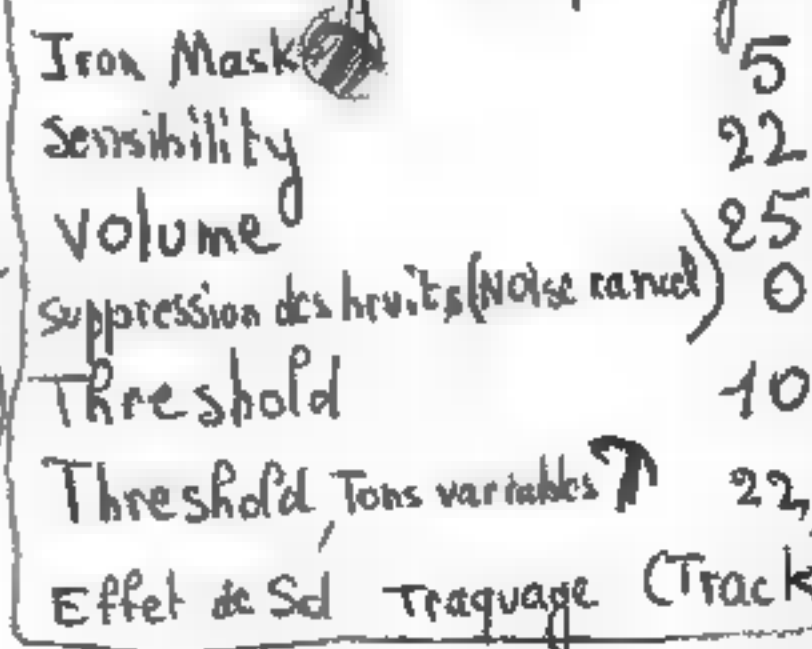 Iron Mask 5
Sensibility 22
Volume 25
Suppression des bruits (Noise cancel) 0
Threshold 10
Threshold, Tons variables 22,
Effet de Sol Traquage (Track